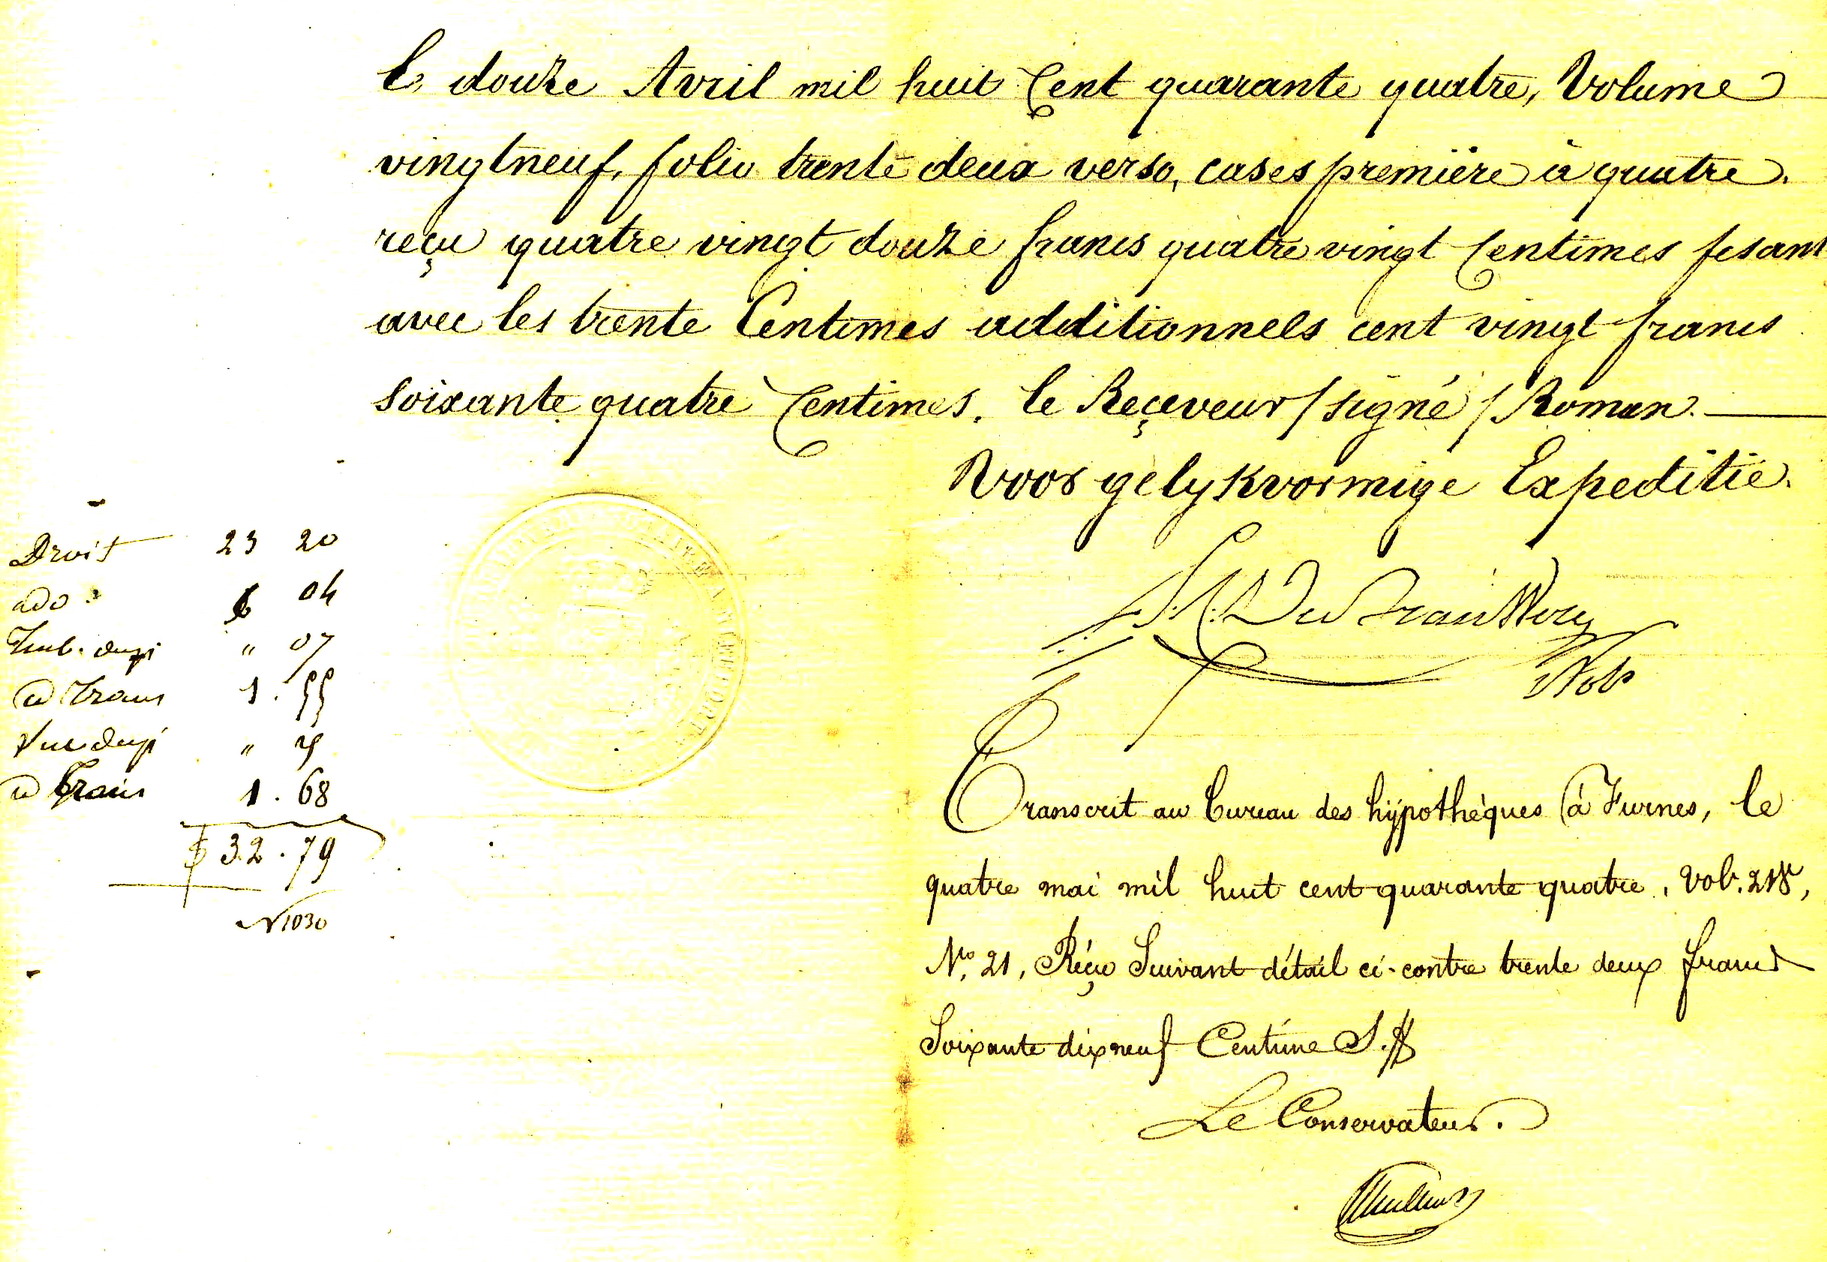 le douze Avril mil huit Cent quarante quatre, Volume
vingtneuf, folio trente deux verso, cases première à quatre.
reçu quatre vingt douze francs quatre vingt Centimes fesant
avec les trente Centimes additionnels cent vingt francs
soixante quatre Centimes. le Reçeveur / signé / Roman.
Voor gelykvormige Expeditie.
Not
Droit 23 20
add 04
" 07
1.55
"
1.68
32.79
N 1030
Transcrit au bureau des hÿpothèques à Furnes, le
quatre mai mil huit cent quarante quatre, Vol.
No. 21, Réçu Suivant détail ci-contre trente deux francs
Soixante dixneuf Centime
Le Conservateur.